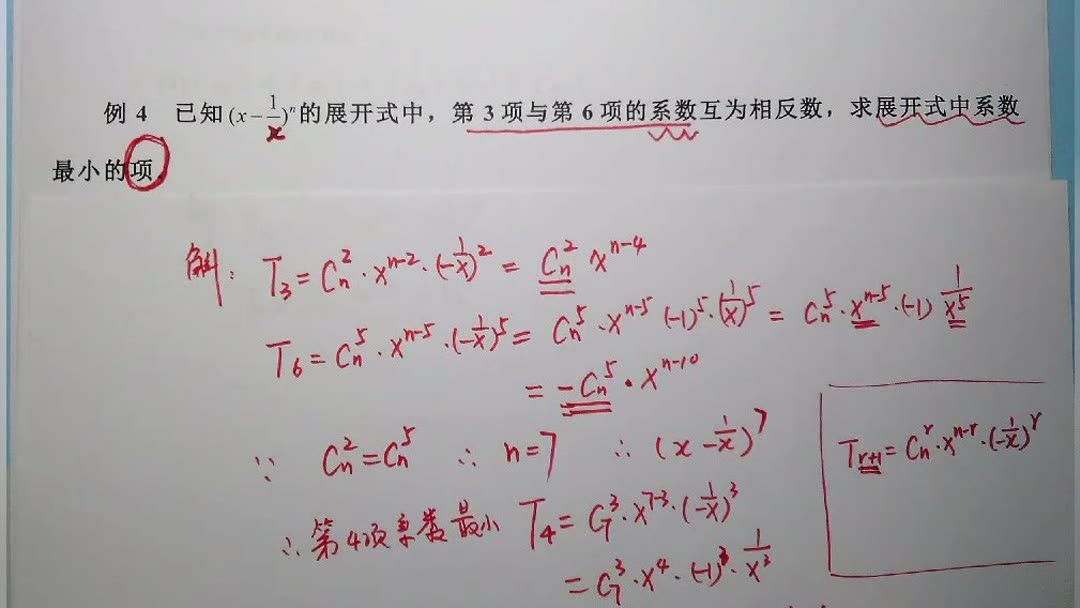 例 4 已知(x-1/x)ⁿ的展开式中，第 3 项与第 6 项的系数互为相反数，求展开式中系数
最小的项.
解： T₃=Cₙ²·xⁿ⁻²·(-1/x)²=Cₙ²xⁿ⁻⁴
T₆=Cₙ⁵·xⁿ⁻⁵·(-1/x)⁵=Cₙ⁵·xⁿ⁻⁵(-1)⁵·(1/x)⁵=Cₙ⁵·xⁿ⁻⁵·(-1)1/x⁵
=-Cₙ⁵·xⁿ⁻¹⁰
∵ Cₙ²=Cₙ⁵ ∴ n=7 ∴ (x-1/x)⁷
∴第4项系数最小 T₄=C₇³·x⁷⁻³·(-1/x)³
=C₇³·x⁴·(-1)³·1/x³
Tᵣ₊₁=Cₙʳ·xⁿ⁻ʳ·(-1/x)ʳ